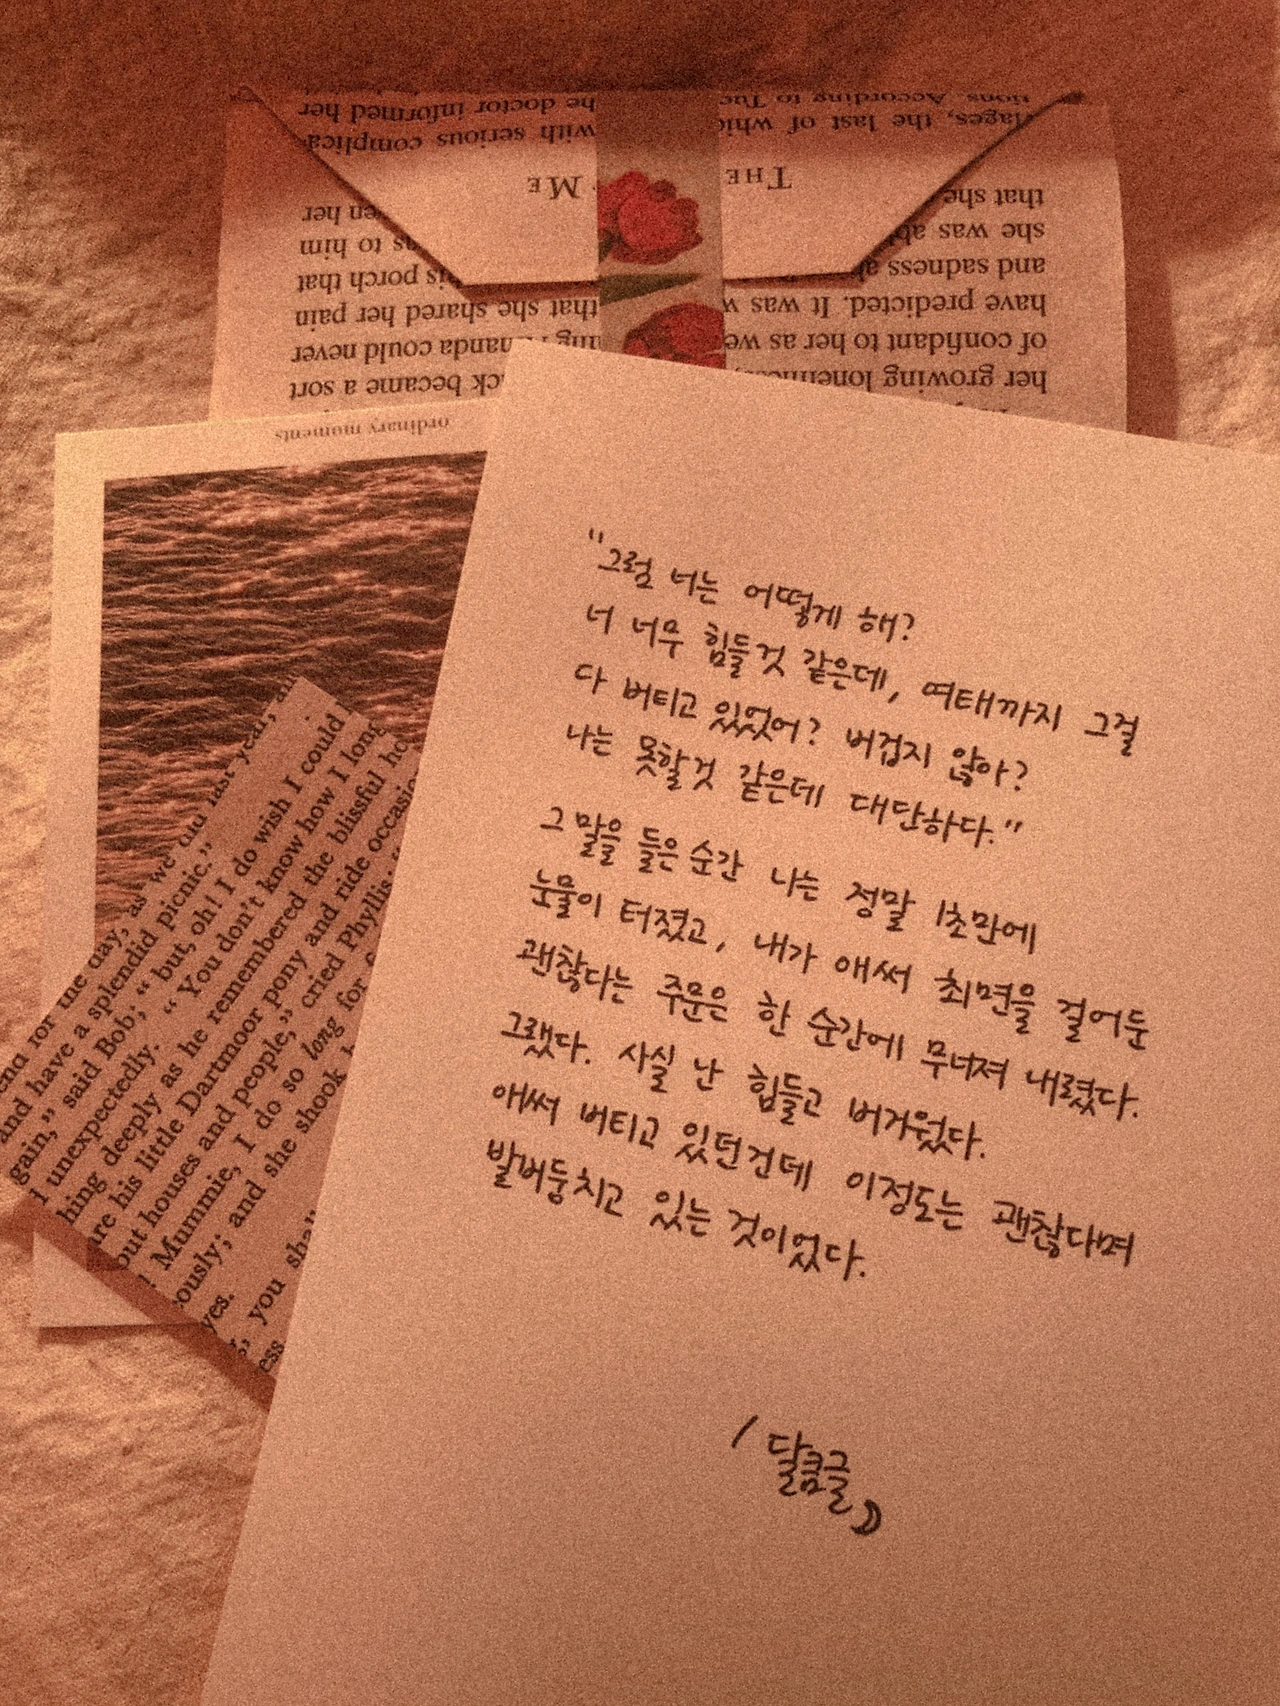 he doctor informed her
with serious complica
ME
en her
s to him
is porch that
that she shared her pain
anda could never
ck became a sort
tions. According to Tuc
lages, the last of whic
THE
that she
she was able
and sadness
have predicted. It was
of confidant to her as we
her growing loneliness,
ordinary moments
as we did last year,
end for the day,
and have a splendid picnic."
gain," said Bob; "but, oh! I do wish I could
unexpectedly. "You don't know how I long
hing deeply as he remembered the blissful ho
are his little Dartmoor pony and ride occasio
out houses and people," cried Phyllis;
Mummie, I do so long for
ously; and she shook
yes.
you shall
ess
"그럼 너는 어떻게 해?
너 너무 힘들것 같은데, 여태까지 그걸
다 버티고 있었어? 버겁지 않아?
나는 못할것 같은데 대단하다."
그 말을 들은 순간 나는 정말 1초만에
눈물이 터졌고, 내가 애써 최면을 걸어둔
괜찮다는 주문은 한 순간에 무너져 내렸다.
그랬다. 사실 난 힘들고 버거웠다.
애써 버티고 있던건데 이정도는 괜찮다며
발버둥치고 있는 것이었다.
/ 달큼글